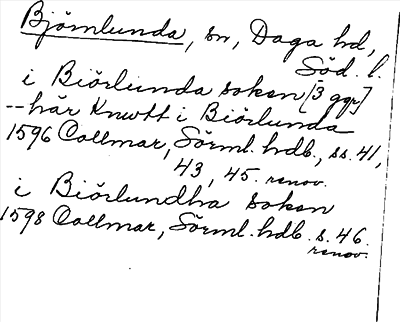 Björnlunda, sn, Daga hd,
Söd. l.
i Biörlunda soken [3 ggr]
-- här Knutt i Biörlunda
1596 Collmar, Sörml. hdb., ss. 41,
43, 45. renov.
i Biörlundha soken
1598 Collmar, Sörml. hdb. s. 46.
renov.